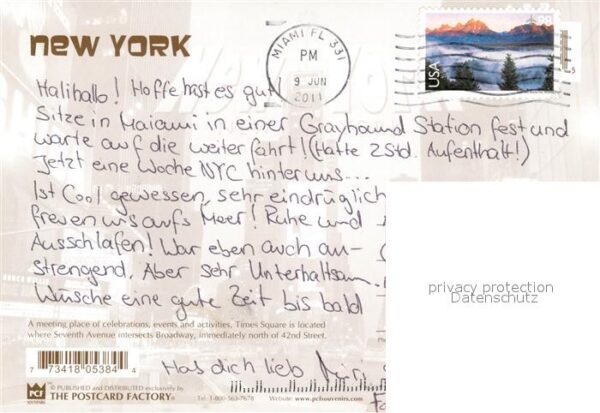 new YORK
MIAMI FL 331
PM
9 JUN
2011
98
USA
Halihallo! Hoffe hast es gut
Sitze in Maiami in einer Grayhound Station fest und
warte auf die weiterfahrt! (Hatte 2 Std. Aufenthalt!)
Jetzt eine Woche NYC hinter uns...
Ist Cool gewessen, sehr eindrüglich
freuen uns aufs Meer! Ruhe und
Ausschlafen! War eben auch an-
strengend. Aber sehr Unterhaltsam.
Wüsche eine gute Zeit bis bald
privacy protection
Datenschutz
A meeting place of celebrations, events and activities, Times Square is located
where Seventh Avenue intersects Broadway, immediately north of 42nd Street.
Has dich lieb
7 73418 05384 4
PCF
© PUBLISHED and DISTRIBUTED exclusively by
THE POSTCARD FACTORY
Tel: 1-800-563-7678 Website: www.pcfsouvenirs.com